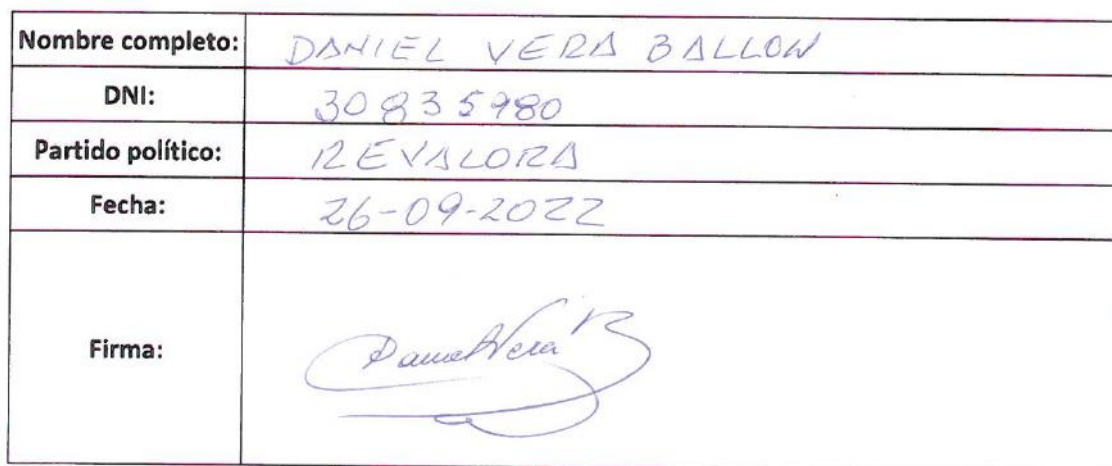 Nombre completo: DANIEL VERA BALLON
DNI: 30835980
Partido político: REVALORA
Fecha: 26-09-2022
Firma: Daniel Vera B